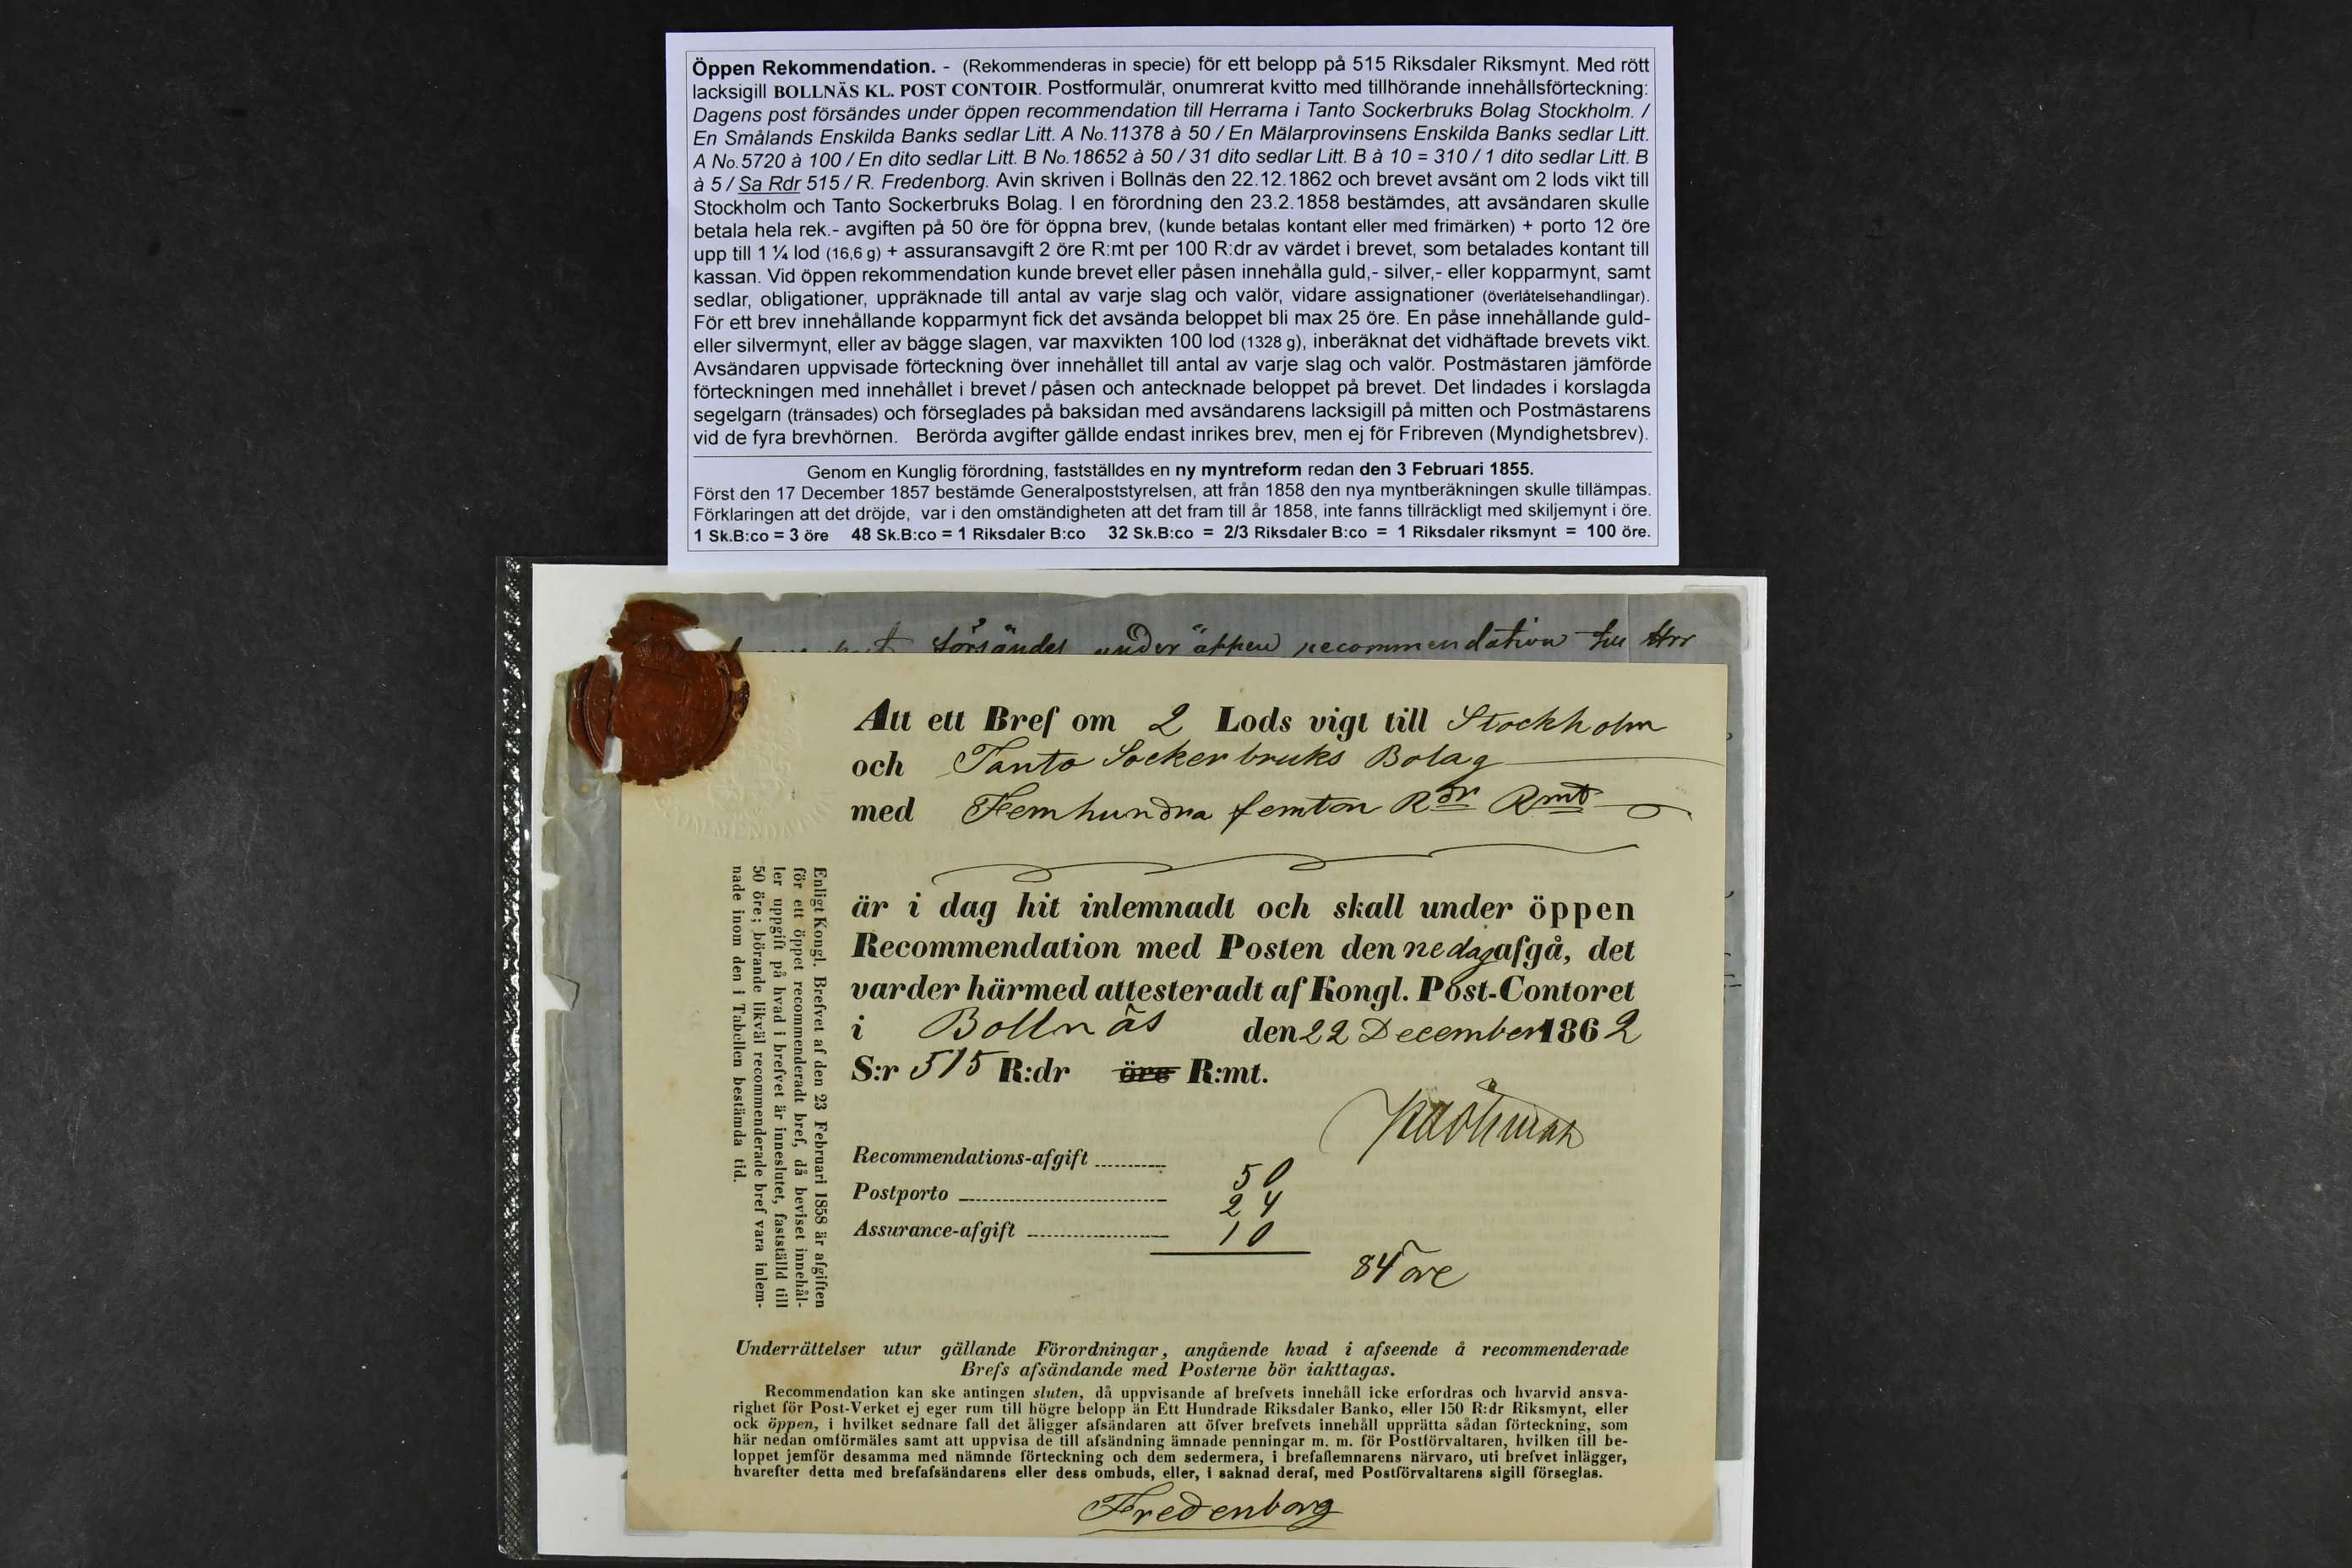 Öppen Rekommendation. - (Rekommenderas in specie) för ett belopp på 515 Riksdaler Riksmynt. Med rött
lacksigill BOLLNÄS KL. POST CONTOIR. Postformulär, onumrerat kvitto med tillhörande innehållsförteckning:
Dagens post försändes under öppen recommendation till Herrarna i Tanto Sockerbruks Bolag Stockholm. /
En Smålands Enskilda Banks sedlar Litt. A No.11378 à 50 / En Mälarprovinsens Enskilda Banks sedlar Litt.
A No.5720 à 100 / En dito sedlar Litt. B No.18652 à 50 / 31 dito sedlar Litt. B à 10 = 310 / 1 dito sedlar Litt. B
à 5 / Sa Rdr 515 / R. Fredenborg. Avin skriven i Bollnäs den 22.12.1862 och brevet avsänt om 2 lods vikt till
Stockholm och Tanto Sockerbruks Bolag. I en förordning den 23.2.1858 bestämdes, att avsändaren skulle
betala hela rek.- avgiften på 50 öre för öppna brev, (kunde betalas kontant eller med frimärken) + porto 12 öre
upp till 1 ¼ lod (16,6 g) + assuransavgift 2 öre R:mt per 100 R:dr av värdet i brevet, som betalades kontant till
kassan. Vid öppen rekommendation kunde brevet eller påsen innehålla guld,- silver,- eller kopparmynt, samt
sedlar, obligationer, uppräknade till antal av varje slag och valör, vidare assignationer (överlåtelsehandlingar).
För ett brev innehållande kopparmynt fick det avsända beloppet bli max 25 öre. En påse innehållande guld-
eller silvermynt, eller av bägge slagen, var maxvikten 100 lod (1328 g), inberäknat det vidhäftade brevets vikt.
Avsändaren uppvisade förteckning över innehållet till antal av varje slag och valör. Postmästaren jämförde
förteckningen med innehållet i brevet / påsen och antecknade beloppet på brevet. Det lindades i korslagda
segelgarn (tränsades) och förseglades på baksidan med avsändarens lacksigill på mitten och Postmästarens
vid de fyra brevhörnen. Berörda avgifter gällde endast inrikes brev, men ej för Fribreven (Myndighetsbrev).
Genom en Kunglig förordning, fastställdes en ny myntreform redan den 3 Februari 1855.
Först den 17 December 1857 bestämde Generalpoststyrelsen, att från 1858 den nya myntberäkningen skulle tillämpas.
Förklaringen att det dröjde, var i den omständigheten att det fram till år 1858, inte fanns tillräckligt med skiljemynt i öre.
1 Sk.B:co = 3 öre 48 Sk.B:co = 1 Riksdaler B:co 32 Sk.B:co = 2/3 Riksdaler B:co = 1 Riksdaler riksmynt = 100 öre.
försändes under öppen recommendation till Hrr
Att ett Bref om 2 Lods vigt till Stockholm
och Tanto Sockerbruks Bolag
med Femhundra femton Rdr Rmt
är i dag hit inlemnadt och skall under öppen
Recommendation med Posten den nedag afgå, det
varder härmed attesteradt af Kongl. Post-Contoret
i Bollnäs den 22 December 1862
S:r 515 R:dr öre R:mt.
Recommendations-afgift 50
Postporto 24
Assurance-afgift 10
84 öre
Enligt Kongl. Brefvet af den 23 Februari 1858 är afgiften
för ett öppet recommenderadt bref, då beviset innehål-
ler uppgift på hvad i brefvet är inneslutet, fastställd till
50 öre; börande likväl recommenderade bref vara inlem-
nade inom den i Tabellen bestämda tid.
Underrättelser utur gällande Förordningar, angående hvad i afseende å recommenderade
Brefs afsändande med Posterne bör iakttagas.
Recommendation kan ske antingen sluten, då uppvisande af brefvets innehåll icke erfordras och hvarvid ansva-
righet för Post-Verket ej eger rum till högre belopp än Ett Hundrade Riksdaler Banko, eller 150 R:dr Riksmynt, eller
ock öppen, i hvilket sednare fall det åligger afsändaren att öfver brefvets innehåll upprätta sådan förteckning, som
här nedan omförmäles samt att uppvisa de till afsändning ämnade penningar m. m. för Postförvaltaren, hvilken till be-
loppet jemför desamma med nämnde förteckning och dem sedermera, i brefaflemnarens närvaro, uti brefvet inlägger,
hvarefter detta med brefafsändarens eller dess ombuds, eller, i saknad deraf, med Postförvaltarens sigill förseglas.
Fredenborg